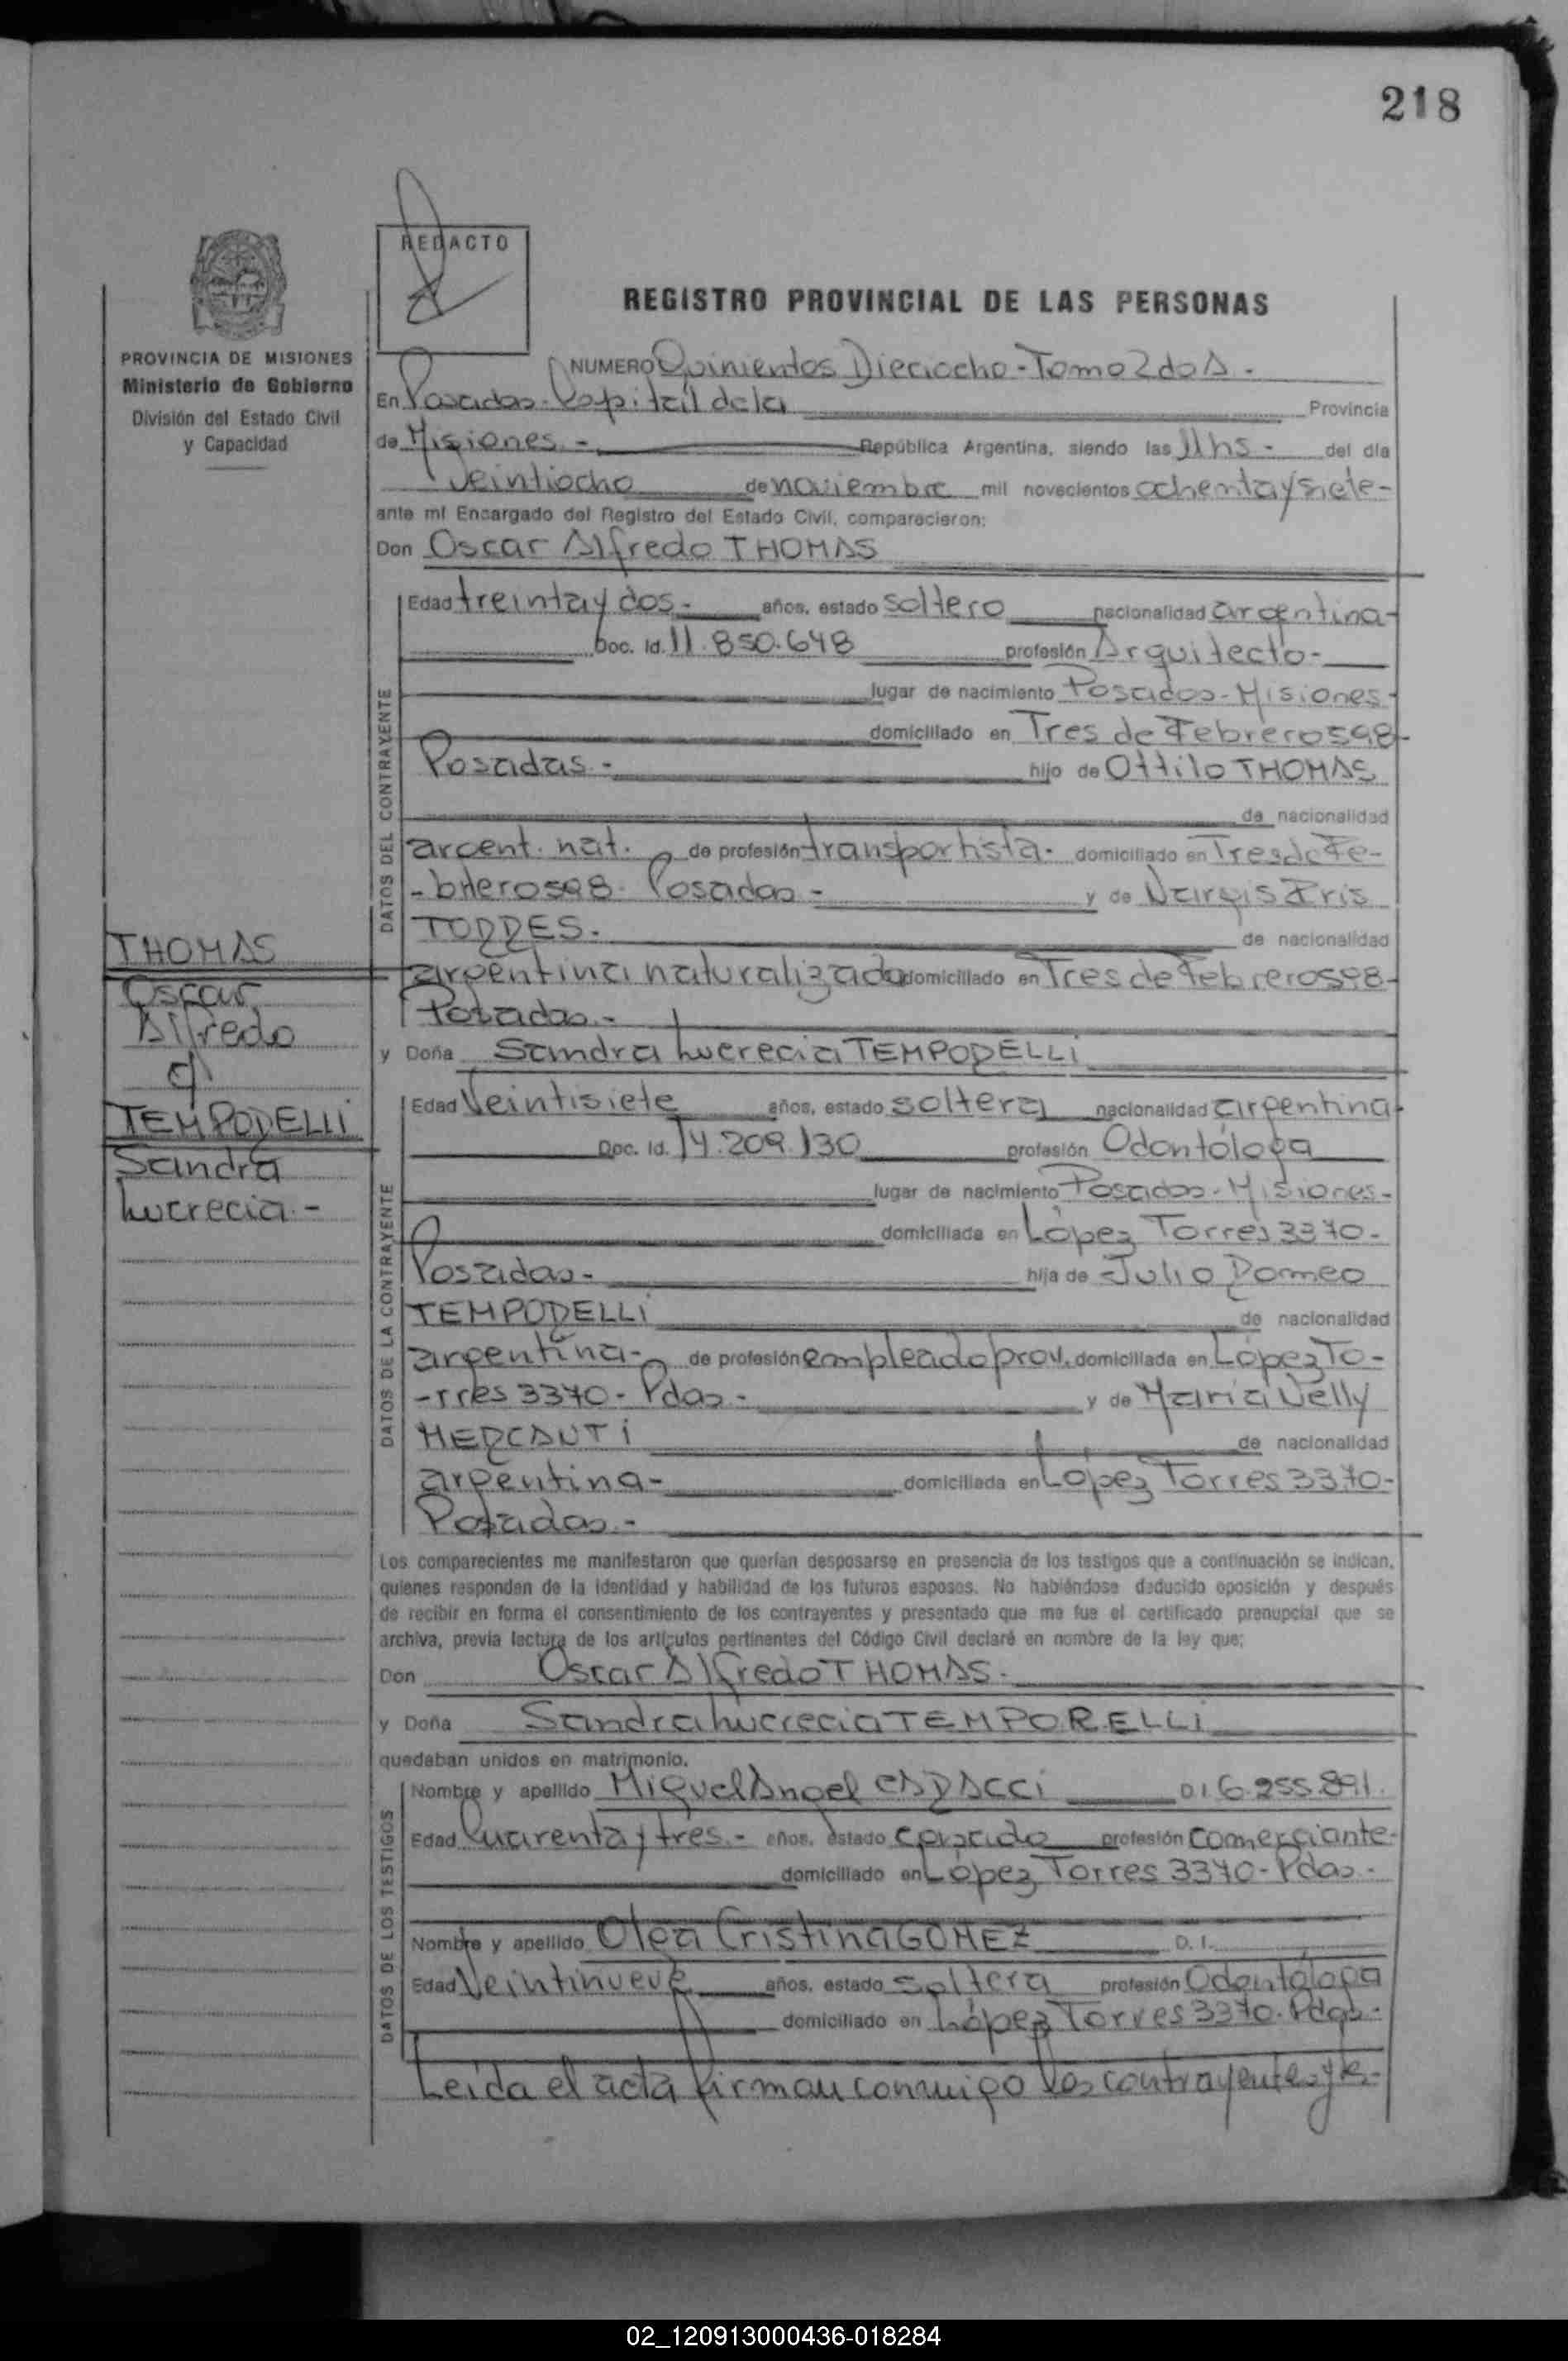 218
REDACTO
REGISTRO PROVINCIAL DE LAS PERSONAS
PROVINCIA DE MISIONES
Ministerio de Gobierno
División del Estado Civil
y Capacidad
NUMERO Quinientos Dieciocho - Tomo 2do A -
En Posadas - Capital de la Provincia
de Misiones - República Argentina, siendo las 11 hs - del día
veintiocho de noviembre mil novecientos ochenta y siete -
ante mí Encargado del Registro del Estado Civil, comparecieron:
Don Oscar Alfredo THOMAS
DATOS DEL CONTRAYENTE
Edad treinta y dos - años, estado soltero nacionalidad argentina -
Doc. Id. 11.850.648 profesión Arquitecto -
lugar de nacimiento Posadas - Misiones -
domiciliado en Tres de Febrero 598 -
Posadas - hijo de Ottilo THOMAS
de nacionalidad
argent. nat. de profesión transportista - domiciliado en Tres de Fe-
-brero 598 - Posadas - y de Nargis Iris
TORRES - de nacionalidad
argentina naturalizada domiciliado en Tres de Febrero 598 -
Posadas -
y Doña Sandra Lucrecia TEMPORELLI
DATOS DE LA CONTRAYENTE
Edad Veintisiete años, estado soltera nacionalidad argentina -
Doc. Id. 14.209.130 profesión Odontóloga
lugar de nacimiento Posadas - Misiones -
domiciliada en López Torres 3370 -
Posadas - hija de Julio Romeo
TEMPORELLI de nacionalidad
argentina - de profesión empleado prov. domiciliada en López To-
-rres 3370 - Pdas - y de Maria Nelly
MERCANTI de nacionalidad
argentina - domiciliada en López Torres 3370 -
Posadas -
THOMAS
Oscar
Alfredo
c/
TEMPORELLI
Sandra
Lucrecia -
Los comparecientes me manifestaron que querían desposarse en presencia de los testigos que a continuación se indican,
quienes responden de la identidad y habilidad de los futuros esposos. No habiéndose deducido oposición y después
de recibir en forma el consentimiento de los contrayentes y presentado que me fue el certificado prenupcial que se
archiva, previa lectura de los artículos pertinentes del Código Civil declaré en nombre de la ley que:
Don Oscar Alfredo THOMAS -
y Doña Sandra Lucrecia TEMPORELLI
quedaban unidos en matrimonio.
DATOS DE LOS TESTIGOS
Nombre y apellido Miguel Angel CARACCI D.I. 6.255.891.
Edad Cuarenta y tres - años, estado casado profesión comerciante -
domiciliado en López Torres 3370 - Pdas -
Nombre y apellido Olga Cristina GOMEZ D.I.
Edad Veintinueve años, estado soltera profesión Odontóloga
domiciliado en López Torres 3370 - Pdas -
Leída el acta firman conmigo los contrayentes y ts -
02_120913000436-018284